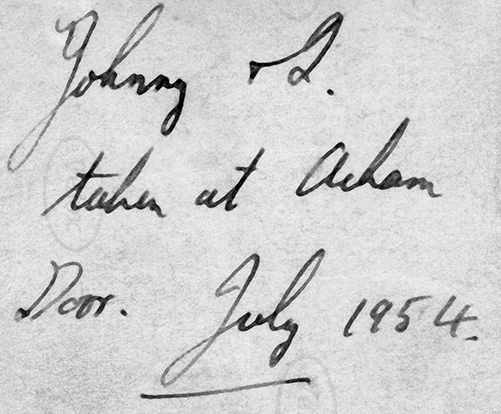 Johnny & I.
taken at Acham
Door. July 1954.